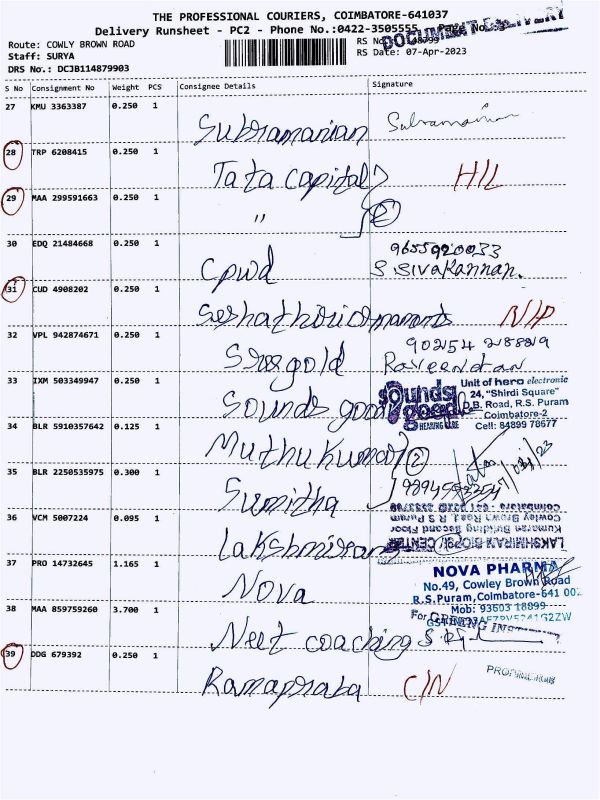 THE PROFESSIONAL COURIERS, COIMBATORE-641037
Delivery Runsheet - PC2 - Phone No.:0422-3505555 Page No.
DOCUMENT DELIVERY
Route: COWLY BROWN ROAD
RS No
Staff: SURYA
RS Date: 07-Apr-2023
DRS No.: DCJB114879903
S No Consignment No Weight PCS Consignee Details Signature
27 KMU 3363387 0.250 1
Subramanian Subramanian
28 TRP 6208415 0.250 1
Tata capital HIL
29 MAA 299591663 0.250 1
" 2
30 EDQ 21484668 0.250 1
9655920033
Cpwd S. Sivakannan.
31 CUD 4908202 0.250 1
N/P
32 VPL 942874671 0.250 1
90254 28829
Sreegold Raveendran
33 IXM 503349947 0.250 1
Sounds good
sounds good
HEARING CARE
Unit of hero electronic
24, "Shirdi Square"
D.B. Road, R.S. Puram
Coimbatore-2
Cell: 84899 78677
34 BLR 5910357642 0.125 1
Muthukumar 2
35 BLR 2250535975 0.300 1
Sumitha
36 VCM 5007224 0.095 1
LAKSHMIRAN BIOPSY CENTRE
Kumaran Building Second Floor
Cowley Brown Road, R S Puram
Coimbatore - 641 002
37 PRO 14732645 1.165 1
Nova
NOVA PHARMA
No.49, Cowley Brown Road
R.S.Puram,Coimbatore-641 002
Mob: 93603 18899
38 MAA 859759260 3.700 1
Neet coaching
For
39 DDG 679392 0.250 1
Ramaprata C/N